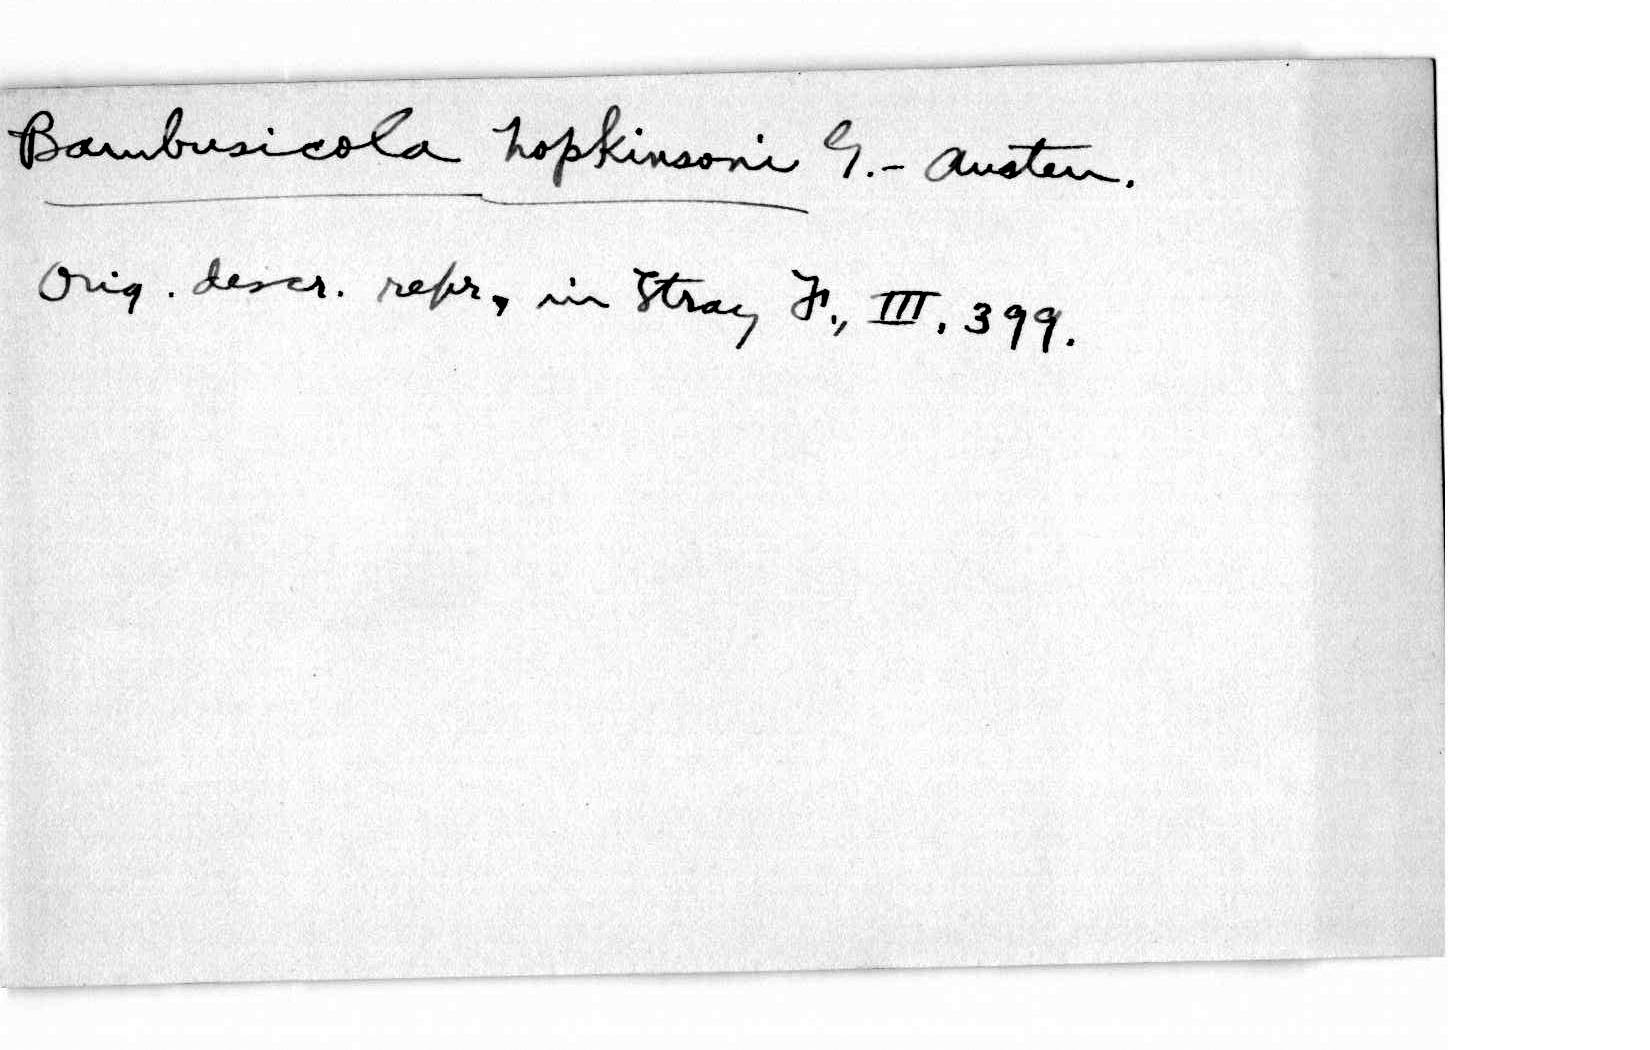 Bambusicola hopkinsoni G.-Austen.
Orig. descr. repr., in Stray F., III, 399.